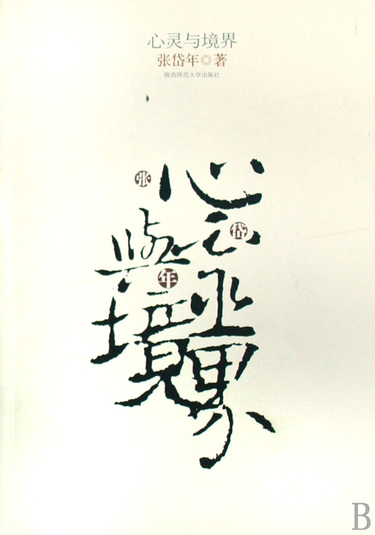 心灵与境界
张岱年◎著
陕西师范大学出版社
心靈
與境界
张
岱
年
B